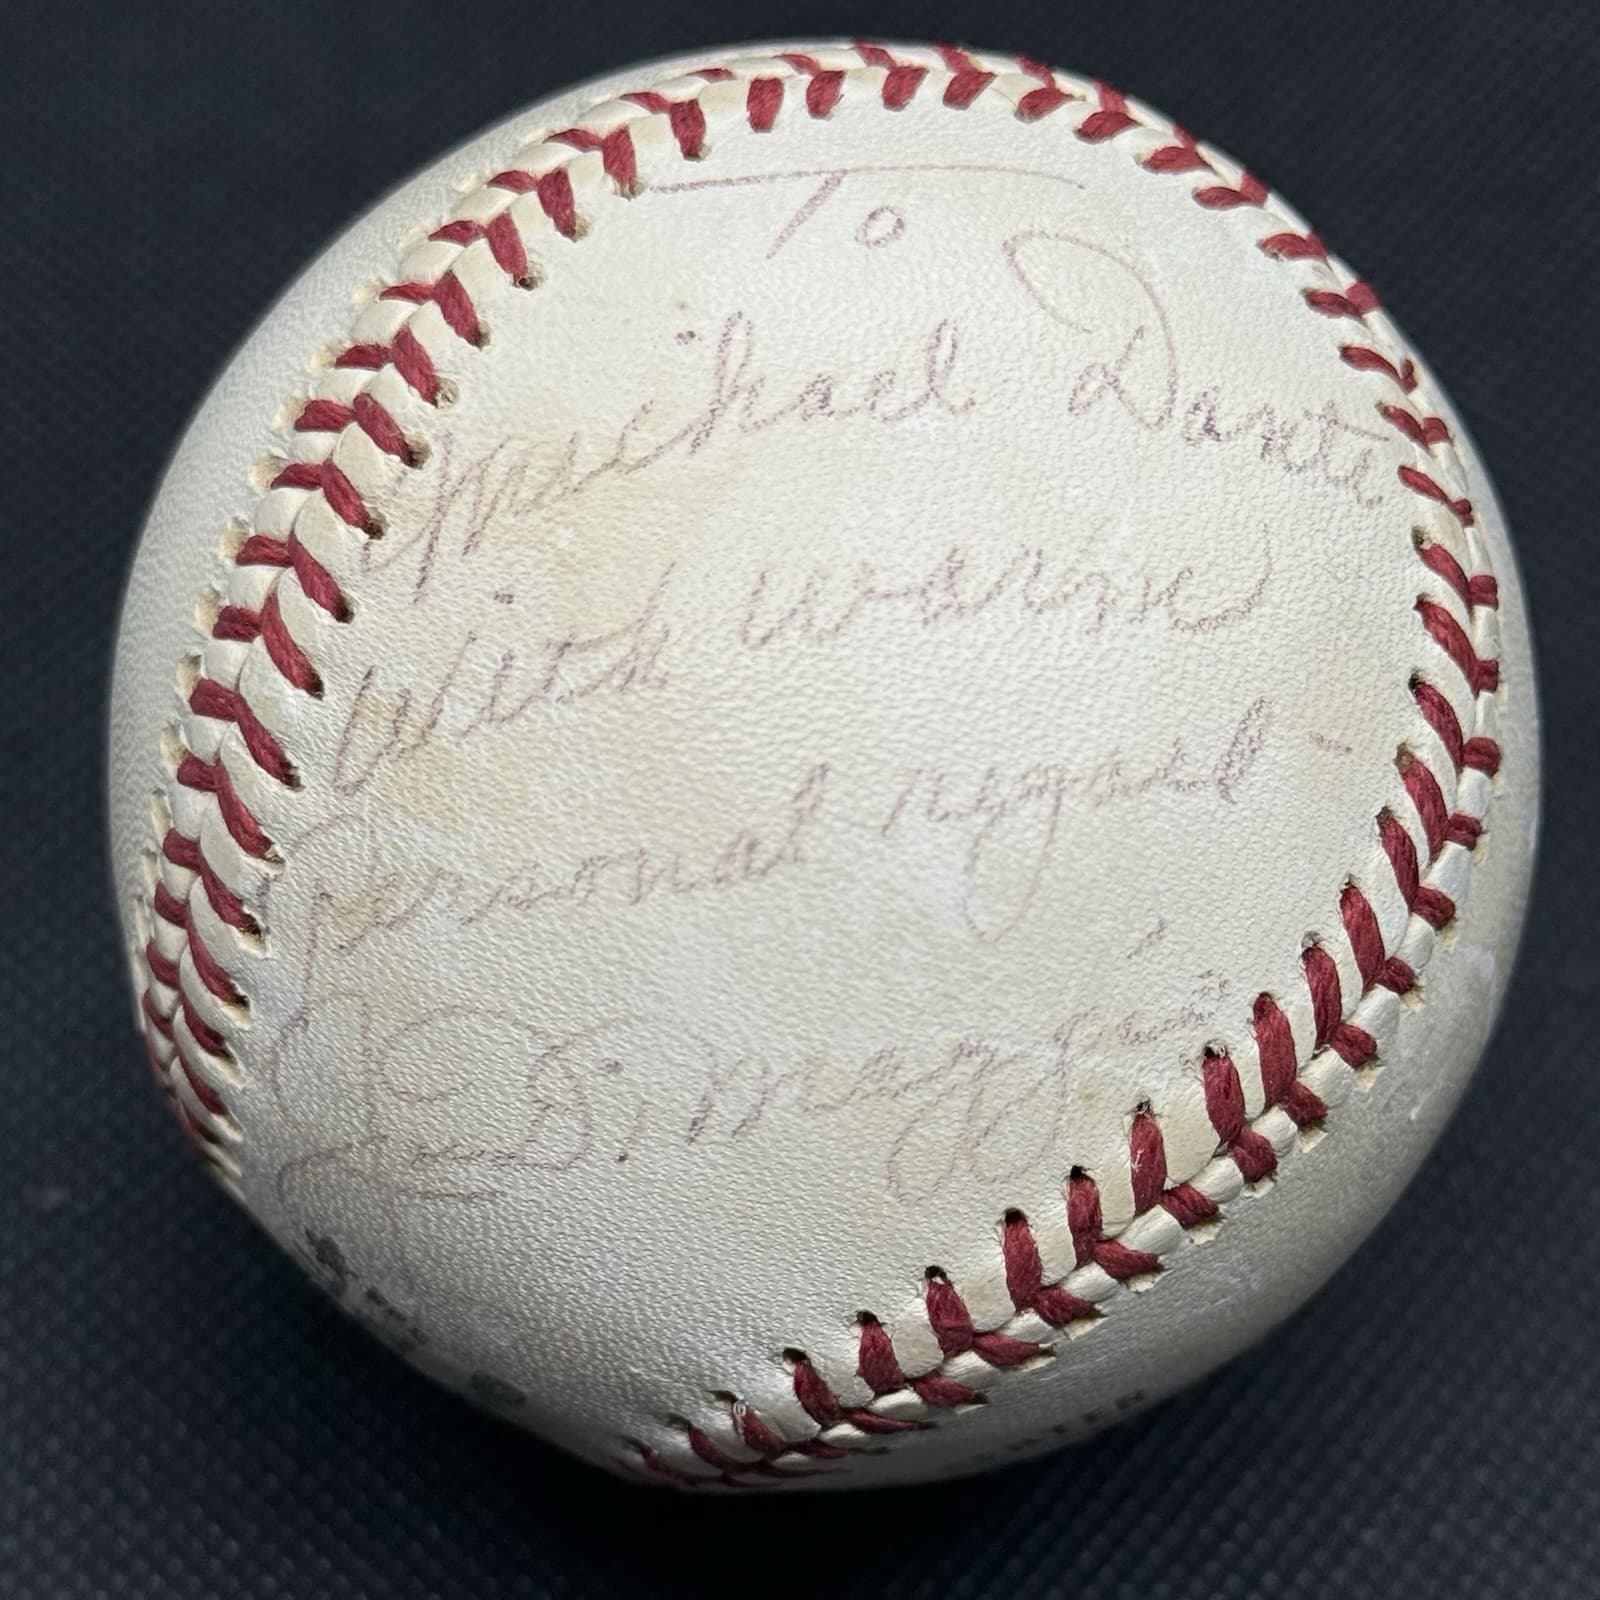 To
Michael Dante
With warm
Personal regard -
Joe DiMaggio